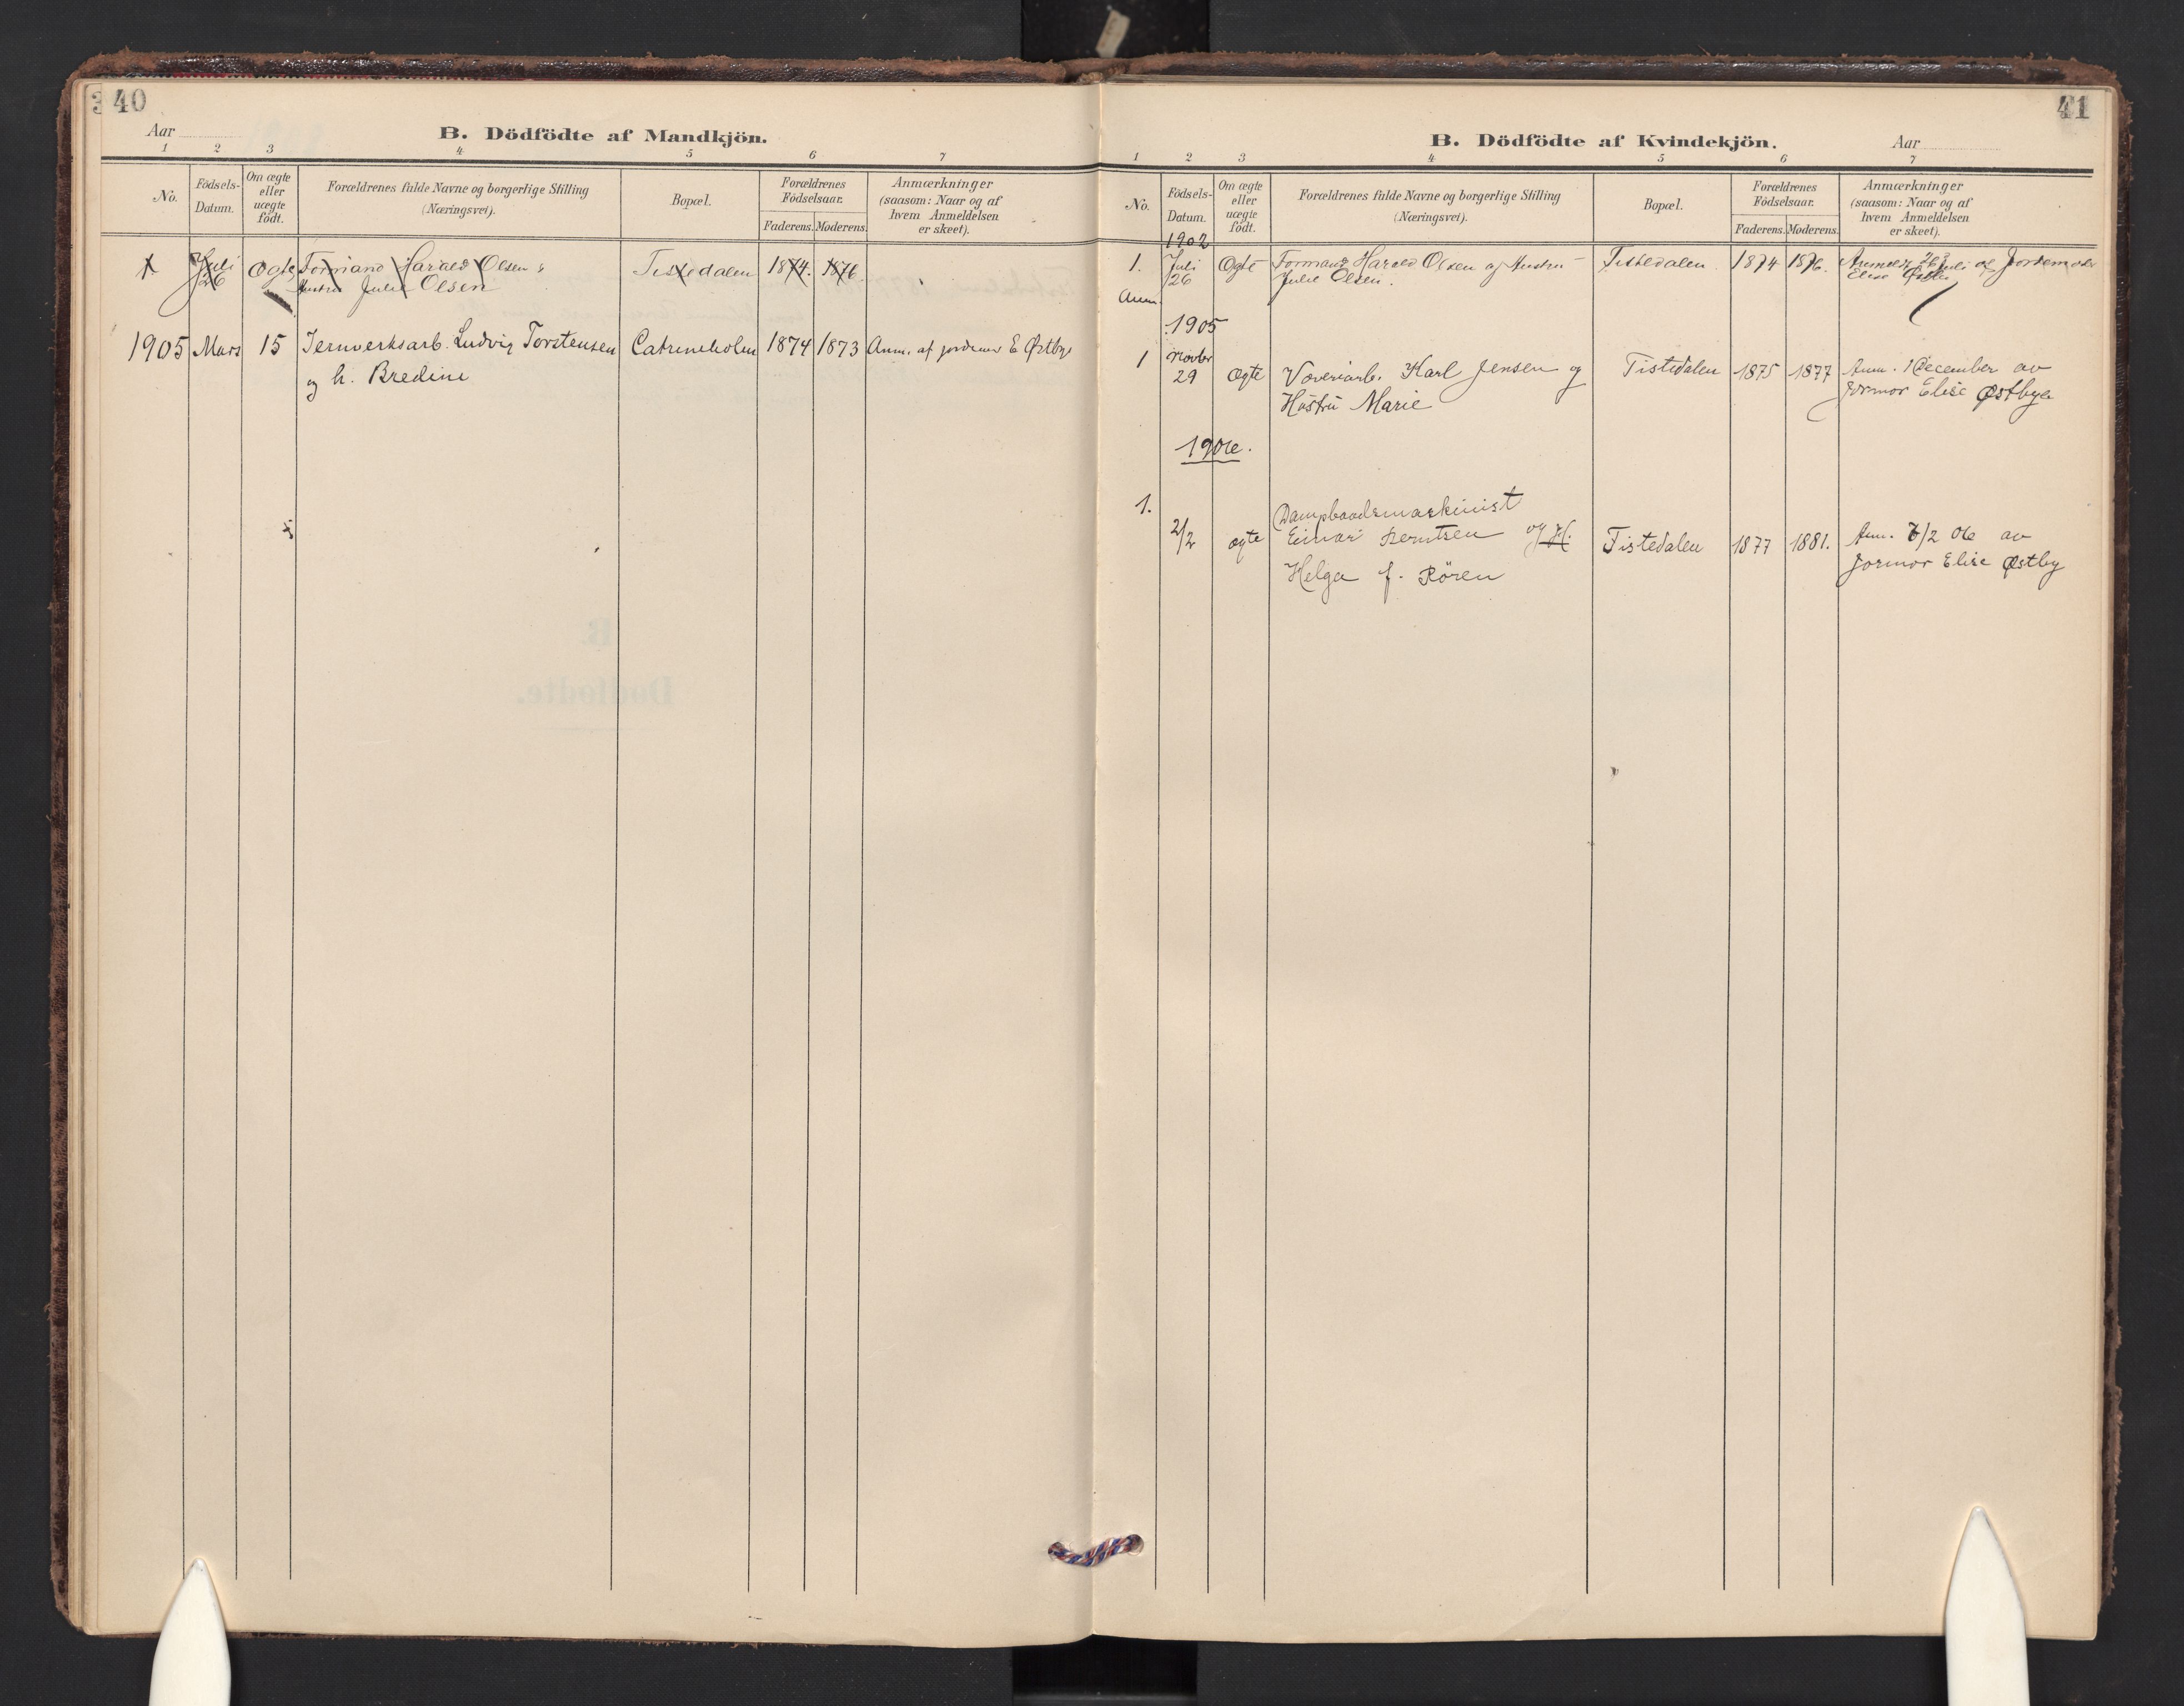 40
Aar
B. Dödfödte af Mandkjön.
1 2 3 4 5 6 7
No.
Födsels-
Datum.
Om ægte
eller
uægte
födt.
Forældrenes fulde Navne og borgerlige Stilling
(Næringsvei).
Bopæl.
Forældrenes
Födselsaar.
Faderens. Moderens.
Anmærkninger
(saasom: Naar og af
hvem Anmeldelsen
er skeet).
1 Juli Ægte Formand Harald Olsen Tistedalen 1874. 1876
26 Hustru Julie Olsen
1905 Mars 15 Jernverksarb. Ludvig Torstensen Catrineholm 1874 1873 Anm. af jordemor E Østbye
og h. Bredine
41
B. Dödfödte af Kvindekjön.
Aar
1 2 3 4 5 6 7
No.
Födsels-
Datum.
Om ægte
eller
uægte
födt.
Forældrenes fulde Navne og borgerlige Stilling
(Næringsvei).
Bopæl.
Forældrenes
Födselsaar.
Faderens. Moderens.
Anmærkninger
(saasom: Naar og af
hvem Anmeldelsen
er skeet).
1902
1. Juli Ægte Formand Harald Olsen og Hustru Tistedalen 1874 1876. Anmeldt Juli af Jordemoder
26 Julie Olsen. Elise Østby
Anm.
1905
1 Novbr
29 Ægte Væveriarb. Karl Jensen og Tistedalen 1875 1877 Anm. 1 December av
Hustru Marie jormor Elise Østbye
1906.
1. Dampbaadsmaskinist
2/2 ægte Einar Berntsen og H. Tistedalen 1877 1881. Anm. 7/2 06 av
Helga f. Røren Jormor Elise Østby